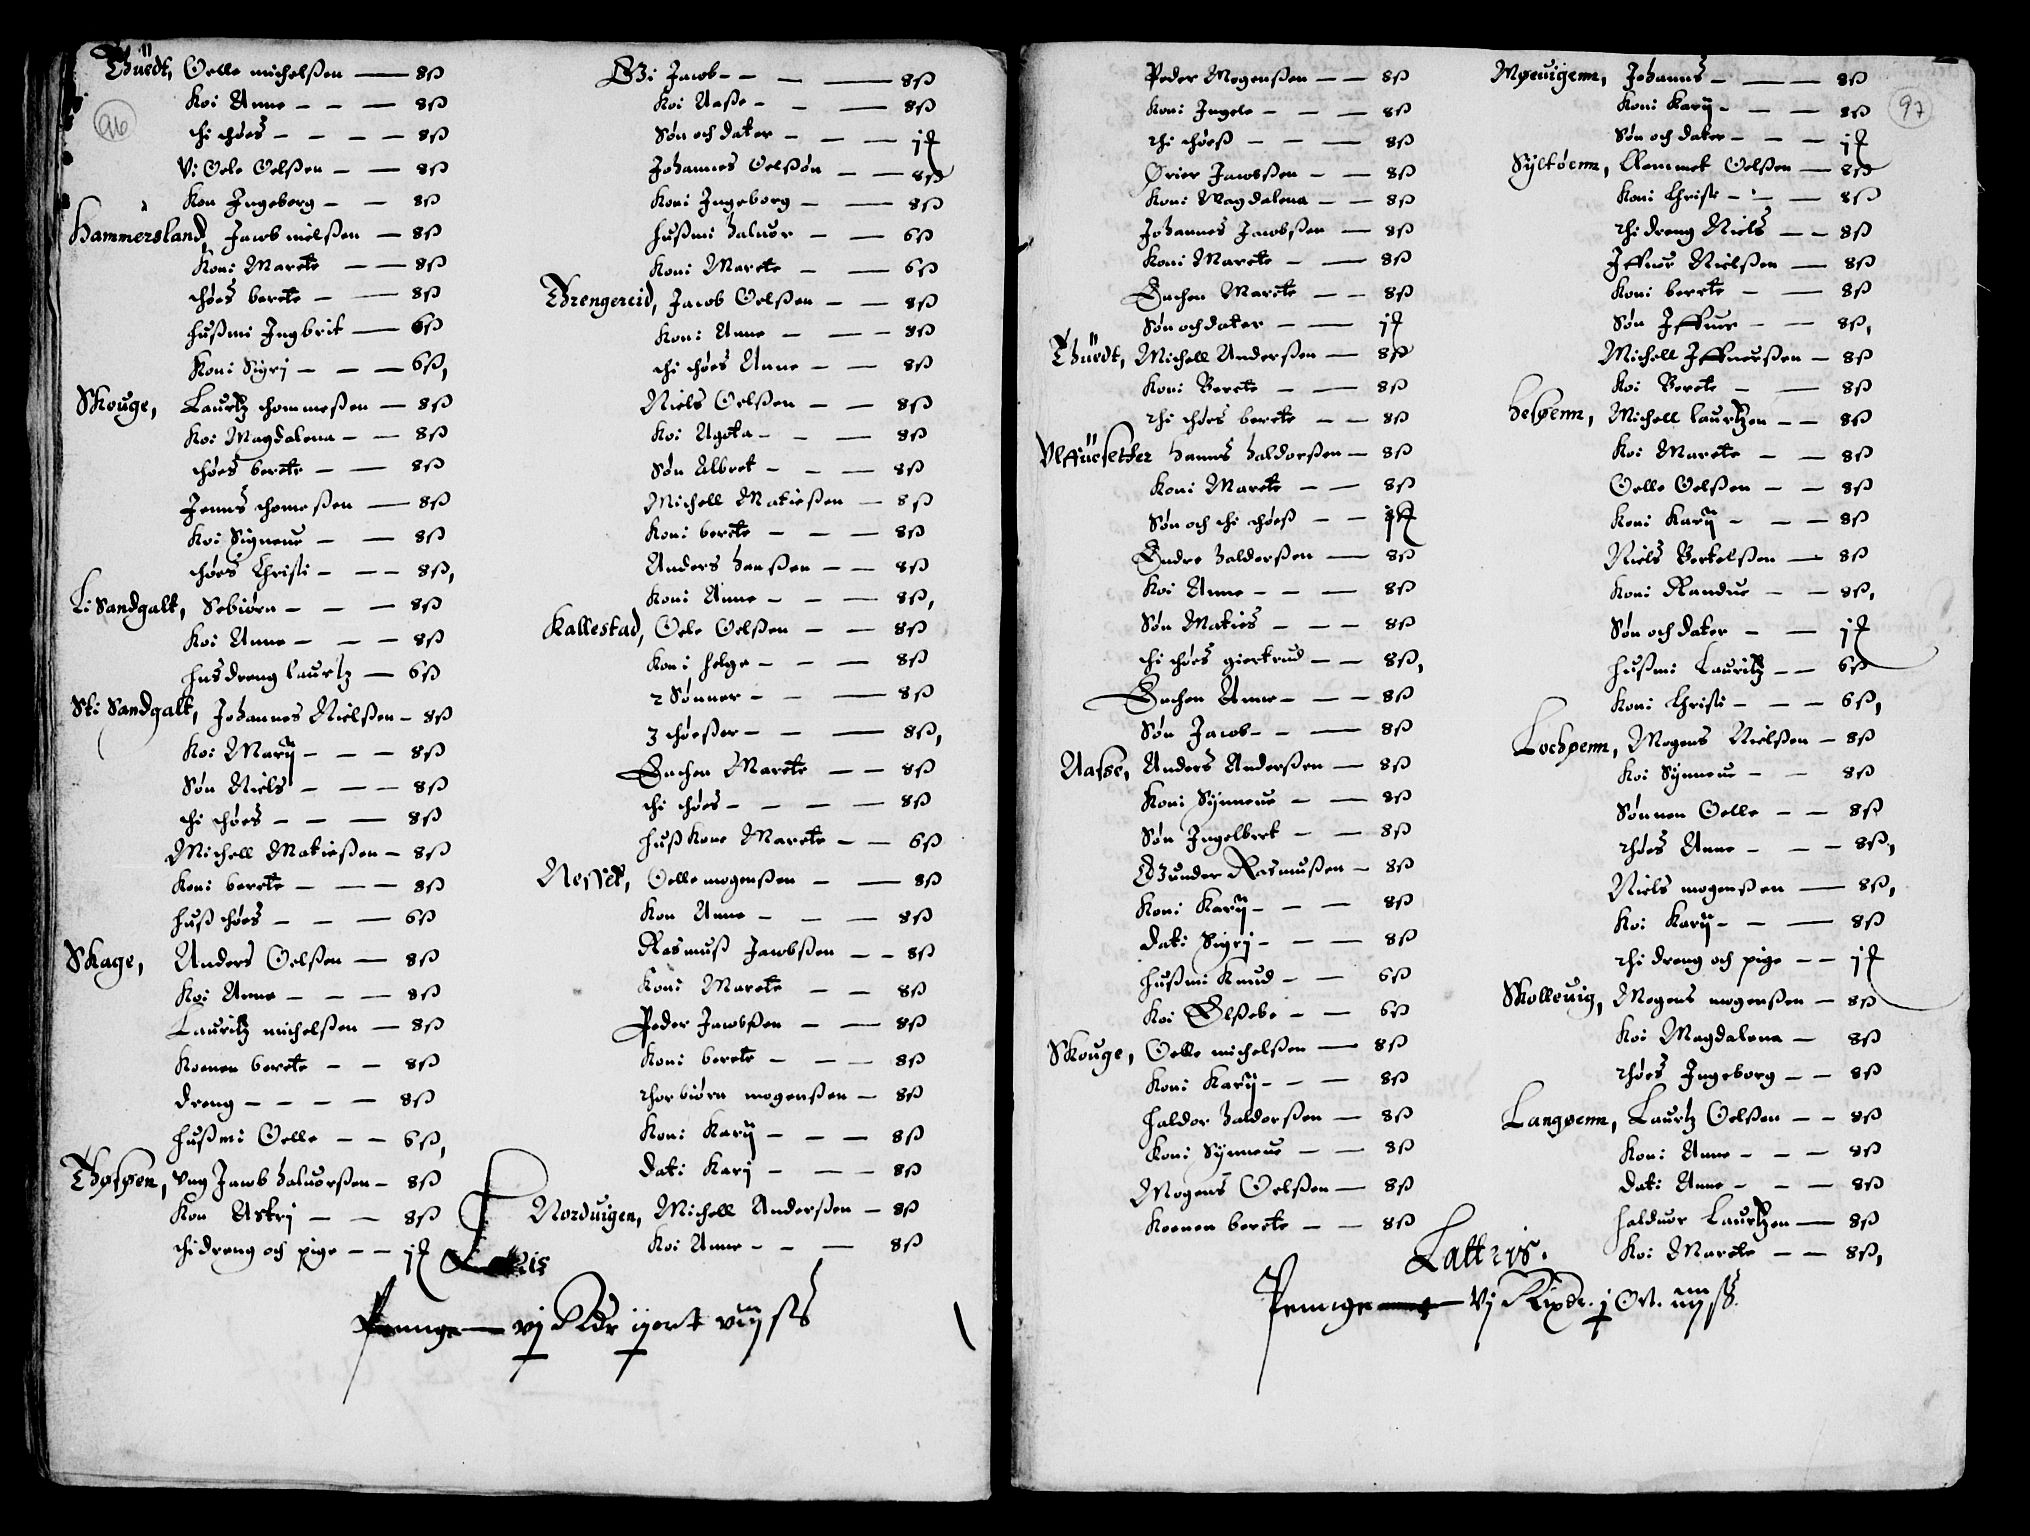 96
Thüedt, Oelle michelßen — 8ß
Koi Anne — — — 8ß
thi thøes — — — — 8ß
Vi Oele Oelßen — — 8ß
Kon Ingeborg — — 8ß
Hammersland, Jacob nielßen — 8ß
Koni Marete — — 8ß
thøes berete — — 8ß
hußmi Ingbrit — 6ß
Koni Sigrj — — — 6ß,
Skouge, Lauritz thommeßen — 8ß
Koi Magdalena — — 8ß
thøes berete — — 8ß
Jenns thomeßen — 8ß
Koi Signeue — — 8ß
thøes Christi — — — 8ß,
Li Sandgalt, Sebiørn — — — 8ß
Koi Anne — — — 8ß
husdreng lauritz — 6ß
Sti Sandgalt, Johannes Nielßen — 8ß
Koi Marÿ — — — 8ß
Søn Niels — — — 8ß
thi thøes — — — 8ß
Michell Matießen — 8ß
Koni berete — — — 8ß
huß thøes — — — 6ß
Skage, Anders Oelßen — 8ß
Koi Anne — — — 8ß
Lauritz michelßen — 8ß
Koenen berete — — 8ß
dreng — — — — 8ß
hußmi Oelle — — 6ß,
Thøsøen, vng Jacob haluorßen — 8ß
Kon Astrj — — 8ß
thi dreng och pige — — j
Jacob — — — — 8ß
Koi Aaße — — — 8ß
Søn och dater — — — j
Johannes Oelßøn — — 8ß
Koni Ingeborg — — 8ß
hußmi haluor — — 6ß
Koni Marete — — 6ß
Threngereid, Jacob Oelßen — — 8ß
Koni Anne — — 8ß
thi thøes Anne — — 8ß
Niels Oelßen — — 8ß
Koi Agota — — — 8ß
Søn Albret — — — 8ß
Michell Matießen — 8ß
Koni berete — — — 8ß
Anders hanßen — — 8ß
Koni Anne — — — 8ß,
Kallestad, Oele Oelßen — — 8ß
Koni helge — — — 8ß
2 Sønner — — — 8ß
3 thøeßer — — — 8ß,
Enchen Marete — — 8ß
thi thøes — — — — 8ß
huß Kone Marete — — 6ß
Nesset, Oelle mogenßen — — 8ß
Kon Anne — — — 8ß
Rasmuß Jacobßen — — 8ß
Koni Marete — — 8ß
Peder Jacobßen — — 8ß
Koni berete — — — 8ß
thorbiørn mogenßen — 8ß
Koni Karÿ — — — 8ß
dati Karj — — — 8ß
Norduigen, Michell Anderßen — 8ß
Koi Anne — — — 8ß
Peninge — vj Rdr ij ort viij ß
97
Peder Mogenßen — — 8ß
Koni Ingele — — — 8ß
thi thøeß — — — 8ß
Jacobßen — — 8ß
Koni Magdalena — — 8ß
Johannes Jacobßen — 8ß
Koni Marete — — 8ß
Enchen Marete — — 8ß
Søn och dater — — j
Thüedt, Michell Anderßen — 8ß
Koni Berete — — 8ß
thi thøes berete — — 8ß
Vlffuesetter hanns haldorßen — 8ß
Koni Marete — — 8ß
Søn och thi thøeß — —
Endre haldorßen — 8ß
Koi Anne — — — 8ß
Søn Maties — — — 8ß
thi thøes giertrud — — 8ß,
Enchen Anne — — — 8ß
Søn Jacob — — — 8ß
Aasse, Anders Anderßen — 8ß
Koni Sÿnneue — — 8ß
Søn Ingelbret — — 8ß
Gunder Rasmußen — 8ß
Koni Karÿ — — — 8ß
dati Sigrj — — — 8ß
hußmi Knud — — 6ß
Koi Elßebe — — 6ß
Skouge, Oelle michelßen — 8ß
Koni Karÿ — — — 8ß
haldor haldorßen — 8ß
Koni Sÿnneue — — 8ß
Mogens Oelßen — 8ß
Koenen berete — — 8ß
Møeuigenn, Johanns — — — 8ß
Koni Karÿ — — — 8ß
Søn och dater — — — j
Sÿltøenn, Clemmet Oelßen — 8ß
Koni Christi — — — 8ß
thi dreng Niels — — 8ß
Iffuer Nielßen — 8ß
Koni berete — — 8ß
Søn Iffuer — — 8ß,
Michell Iffuerßen — 8ß
Koi Berete — — 8ß
heløenn, Michell lauritzen — — 8ß
Koi Marete — — 8ß
Oelle Oelßen — — 8ß
Koni Karÿ — — — 8ß
Niels Bertelßen — 8ß
Koni Randue — — 8ß,
Søn och dater — — j
hußmi Lauritz — — 6ß
Koni Christi — — — 6ß,
Lochøenn, Mogens Nielßen — 8ß
Koi Sÿnneue — — 8ß
Sønnen Oelle — — 8ß
thøes Anne — — — 8ß,
Niels mogenßen — 8ß,
Koi Karÿ — — — 8ß
thi dreng och pige — — j
Skolleuig, Mogens mogenßen — 8ß
Koi Magdalena — 8ß
thøes Ingeborg — — 8ß
Langøenn, Lauritz Oelßen — — 8ß
Koni Anne — — — 8ß
dati Anne — — — 8ß
halduor Lauritzen — 8ß
Koi Marete — — 8ß,
Lattris.
Penninge — vj Rixdr. j Ort. iiij ß.